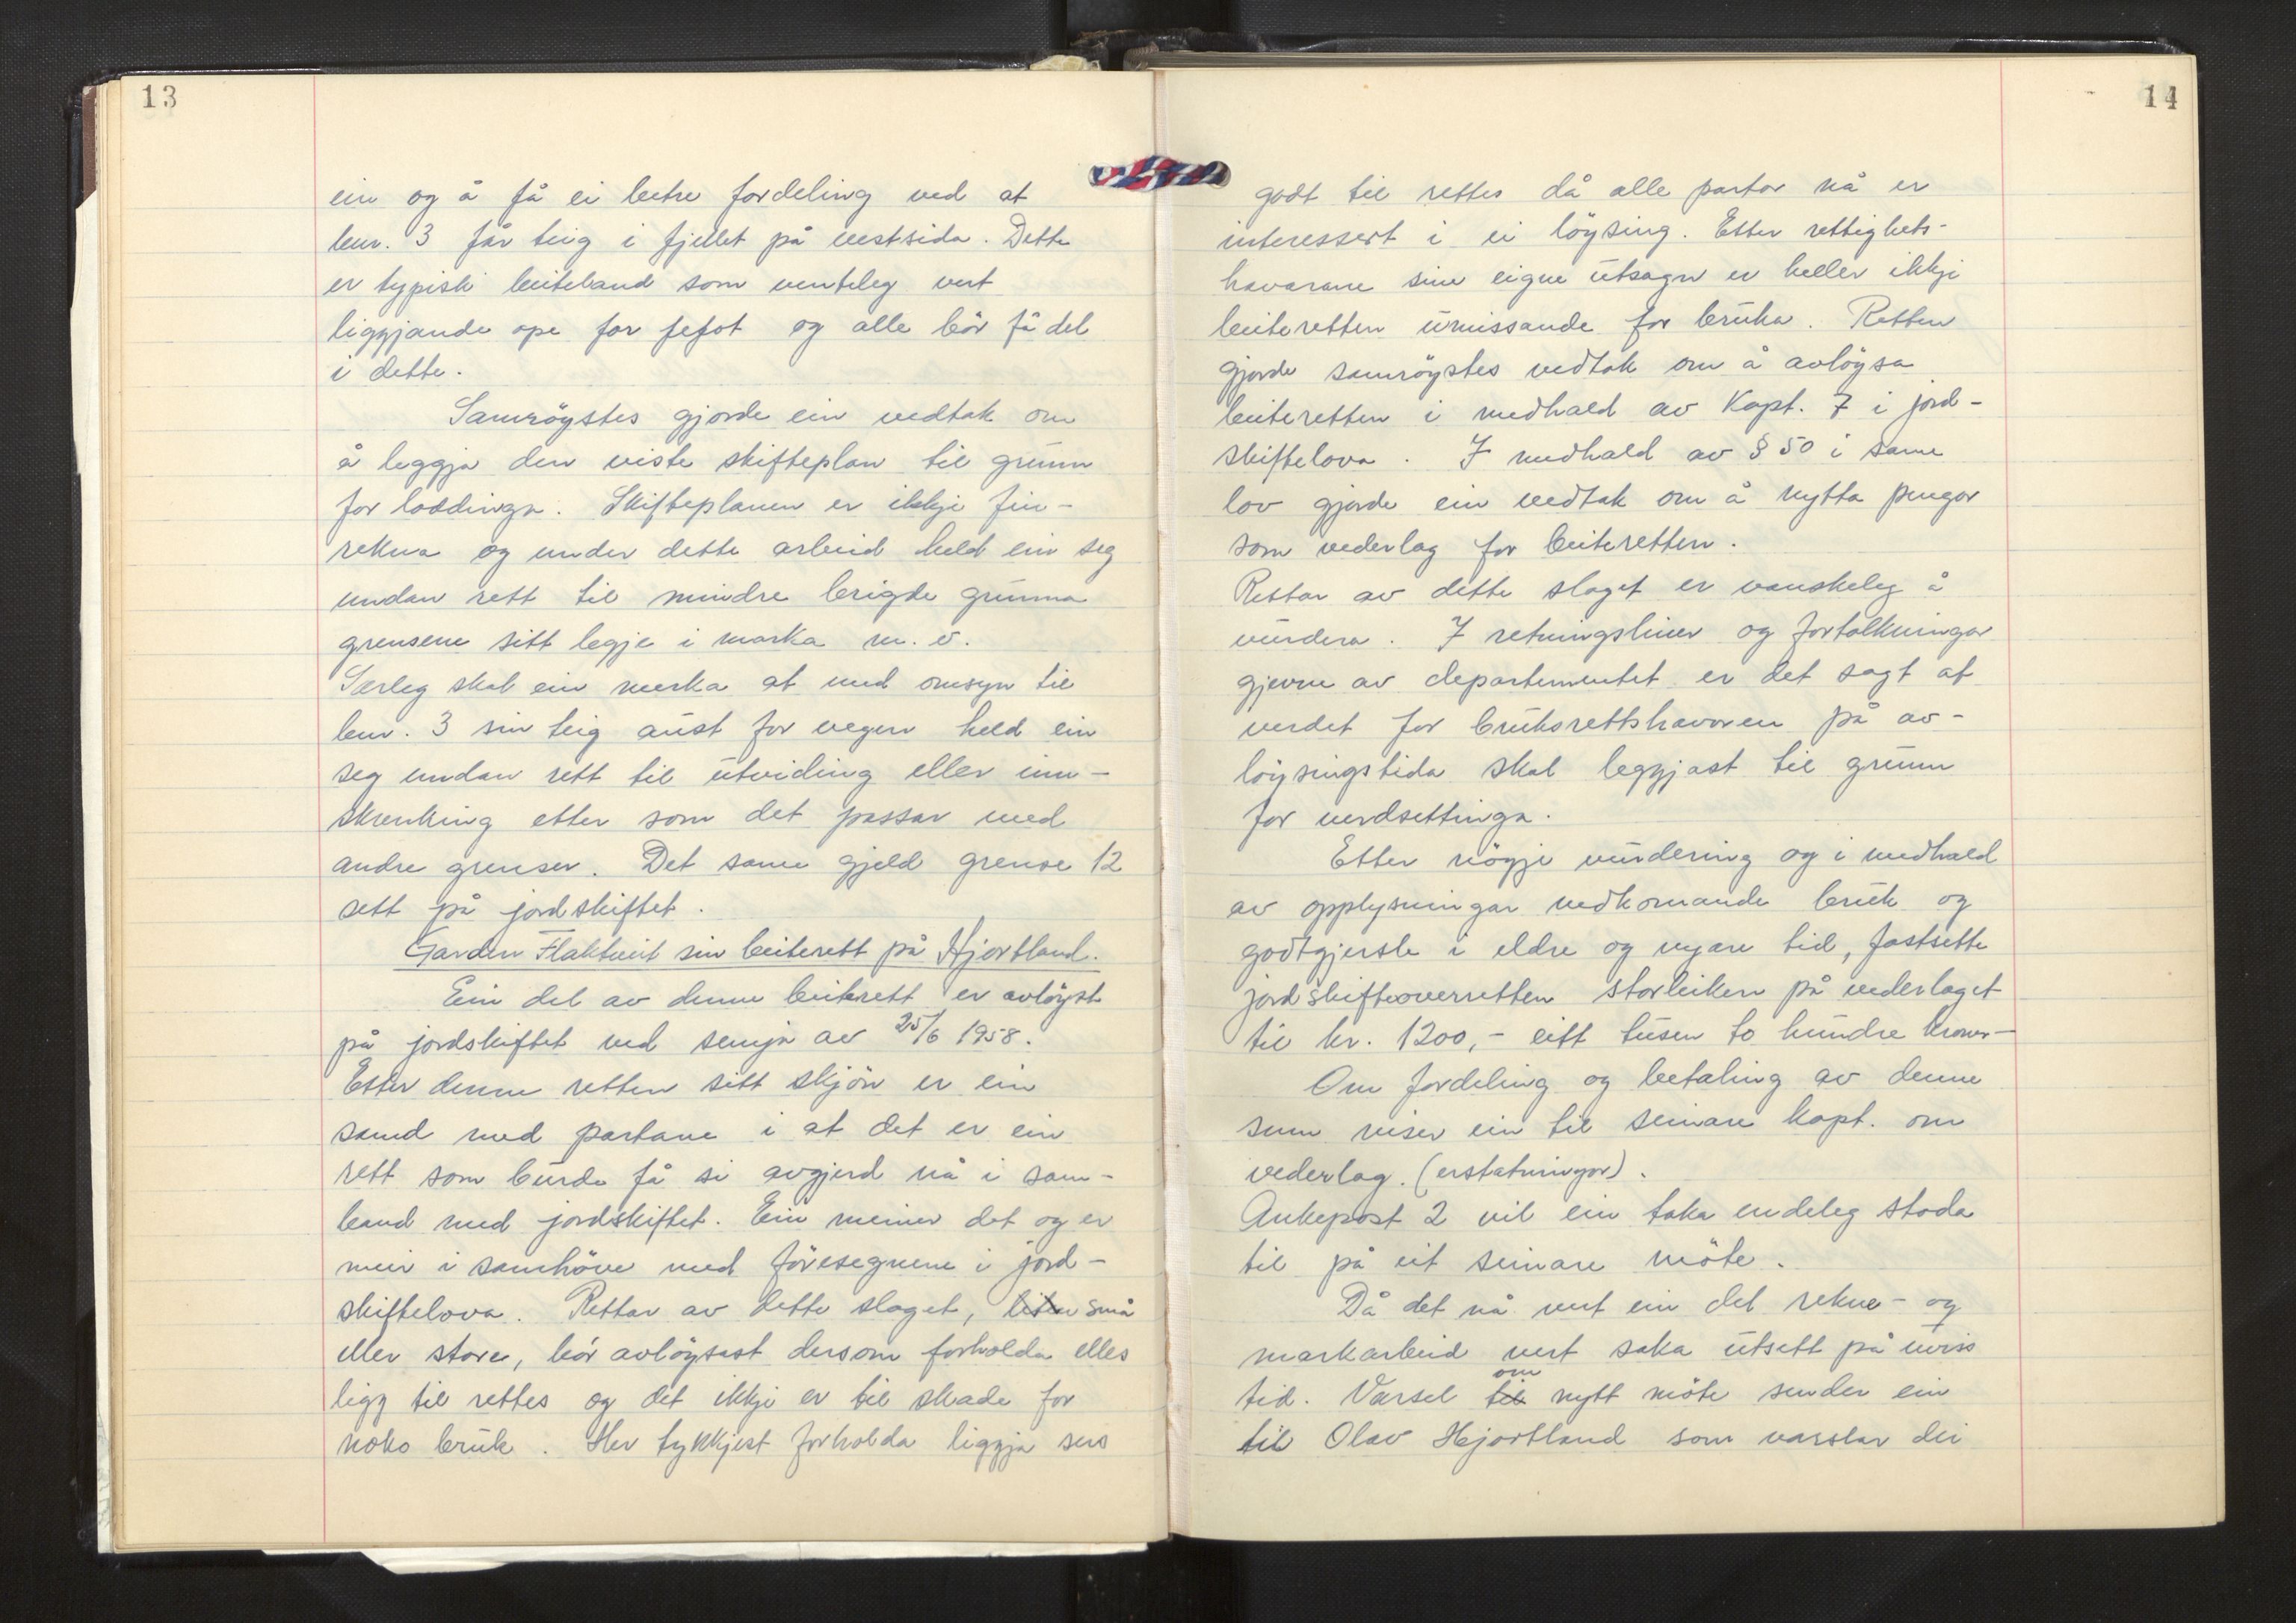 13
ein og å få ei betre fordeling ved at
bnr. 3 får teig i fjellet på vestsida. Dette
er typisk beiteland som venteleg vert
liggjande ope for fefot og alle bör få del
i dette.
Samröystes gjorde ein vedtak om
å leggja den viste skifteplan til grunn
for loddinga. Skifteplanen er ikkje fin-
rekna og under dette arbeid held ein seg
undan rett til mindre brigde grunna
grensene sitt legje i marka m. v.
Særleg skal ein merka at med omsyn til
bnr. 3 sin teig aust for vegen held ein
seg undan rett til utviding eller inn-
skrenking etter som det passar med
andre grenser. Det same gjeld grense 12
sett på jordskiftet.
Garden Flaktveit sin beiterett på Hjortland.
Ein del av denne beiterett er avlöyst
på jordskiftet ved semja av 25/6 1958.
Etter denne retten sitt skjön er ein
samd med partane i at det er ein
rett som burde få si avgjerd nå i sam-
band med jordskiftet. Ein meiner det og er
meir i samhöve med föresegnene i jord-
skiftelova. Rettar av dette slaget, små
eller store, bör avlöysast dersom forholda elles
ligg til rettes og det ikkje er til skade for
noko bruk. Her tykkjest forholda liggja sers
14
godt til rettes då alle partar nå er
interessert i ei löysing. Etter rettighets-
havarane sine eigne utsagn er heller ikkje
beiteretten umissande for bruka. Retten
gjorde samröystes vedtak om å avlöysa
beiteretten i medhald av Kapt. 7 i jord-
skiftelova. I medhald av § 50 i same
lov gjorde ein vedtak om å nytta pengar
som vederlag for beiteretten.
Rettar av dette slaget er vanskeleg å
vurdera. I retningsliner og fortolkningar
gjevne av departementet er det sagt at
verdet for bruksrettshavaren på av-
löysingstida skal leggjast til grunn
for verdsettinga.
Etter nögje vurdering og i medhald
av opplysningar vedkomande bruk og
godtgjersle i eldre og nyare tid, fastsette
jordskifteoverretten storleiken på vederlaget
til kr. 1200,- eitt tusen to hundre kroner-
Om fordeling og betaling av denne
sum viser ein til seinare kapt. om
vederlag. (erstatningar).
Ankepost 2 vil ein taka endeleg stoda
til på eit seinare möte.
Då det nå vert ein del rekne- og
markarbeid vert saka utsett på uviss
tid. Varsel til om nytt möte sender ein
til Olav Hjortland som varslar dei